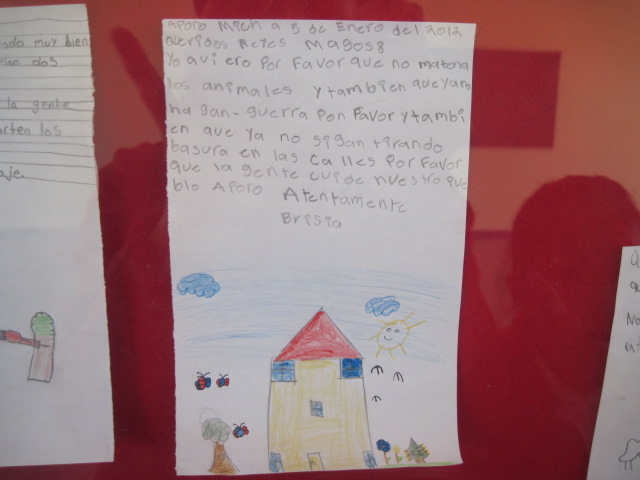 Aporo Mich a 5 de Enero del 2012
Queridos Reyes Magos
Yo quiero por favor que no maten a
los animales y tambien que ya no
hagan guerra por favor y tambi
en que ya no sigan tirando
basura en las calles por favor
que la gente cuide nuestro pue
blo Aporo Atentamente
Brisia
muy bien
dos
la gente
los